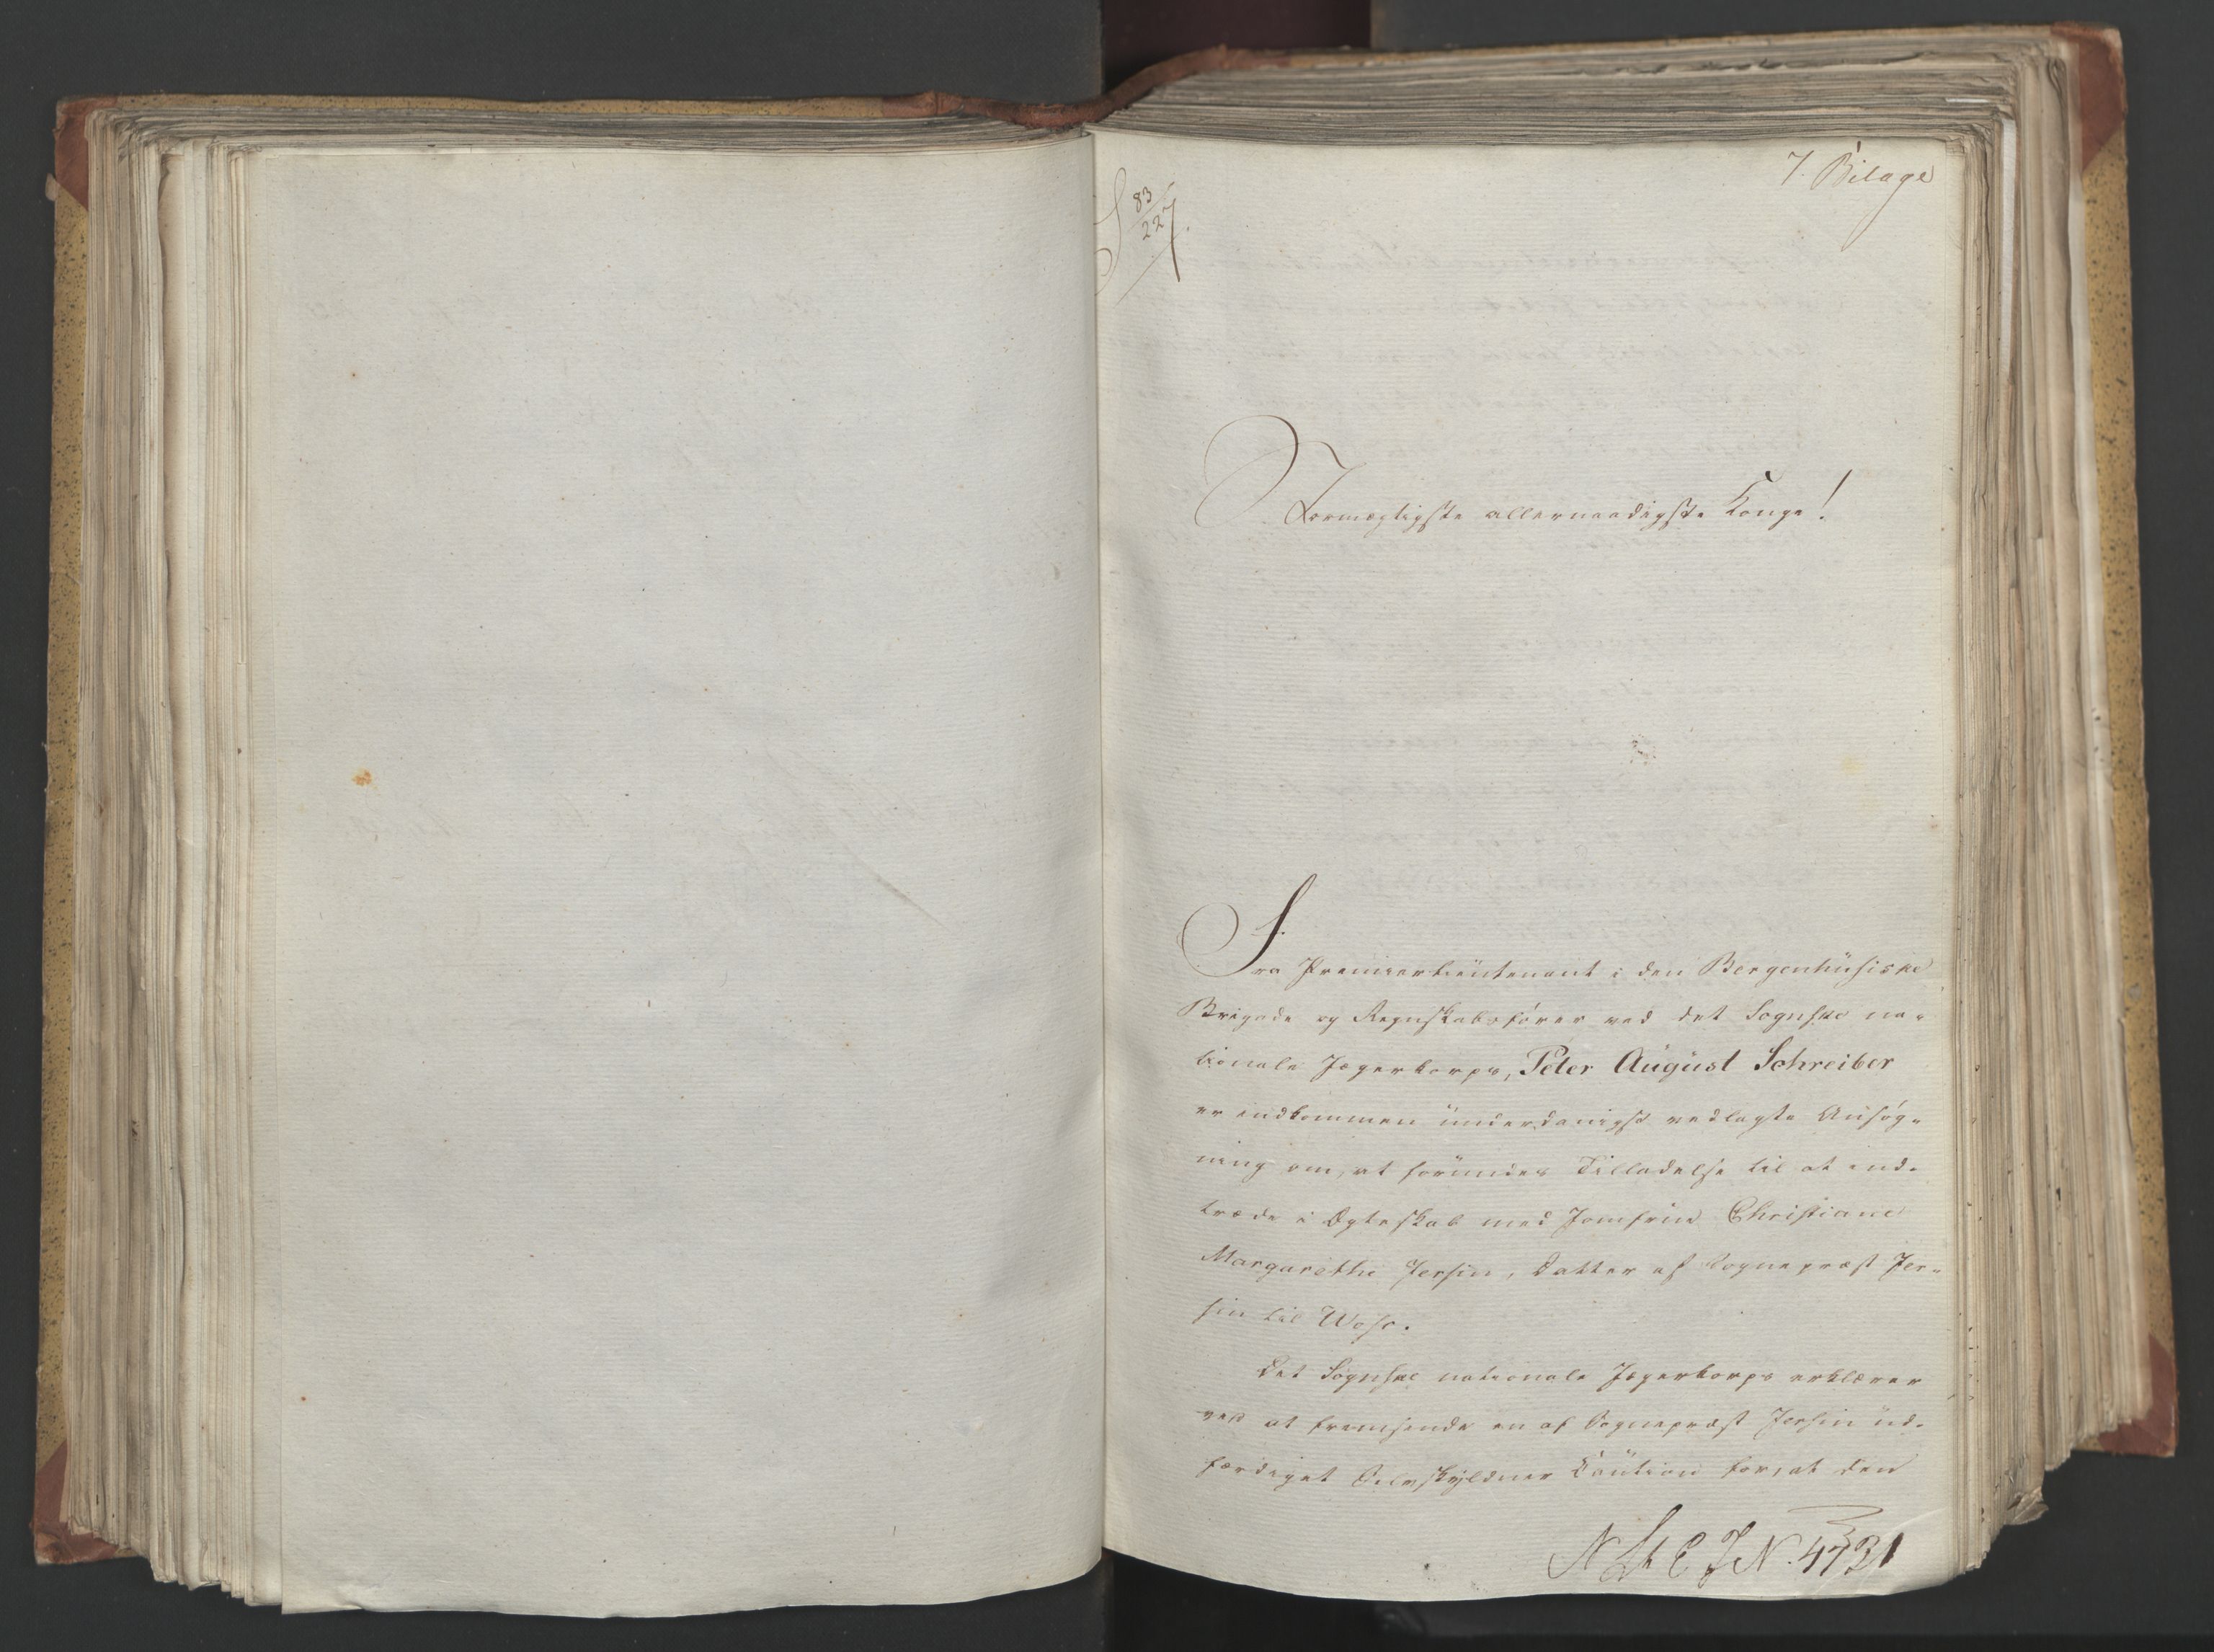 7. Bilage
83
227.
Stormægtigste allernaadigste Konge!
Fra Premierlieutenant i den Bergenhüsiske
Brigade og Regnskabsfører ved det Sognske na-
tionale Jægerkorps, Peter Aügüst Schreiber
er indkommen ünderdanigst vedlagte Ansøg-
ning om, at foründes Tilladelse til at ind-
træde i Ægteskab med Jomfrüe Christiane
Margarethe Jersin, Datter af Sognepræst Jer-
sin til Woss.
Det Sognske nationale Jægerkorps erklærer
ved at fremsende en af Sognepræst Jersin üd-
færdiget Selvskÿldner Caütion for, at den
N. 4731